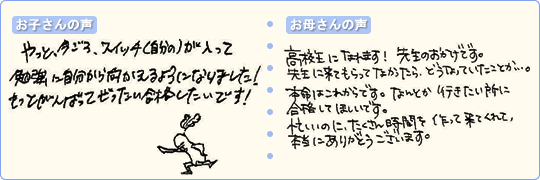 お子さんの声
やっと、今ごろ、スイッチ(自分の)が入って
勉強に自分から向かえるようになりました!
もっとがんばってぜったい合格したいです!
お母さんの声
高校生になれます! 先生のおかげです。
先生に来てもらってなかったら、どうなっていたことか…。
本命はこれからです。なんとか行きたい所に
合格してほしいです。
忙しいのに、たくさん時間を作って来てくれて、
本当にありがとうございます。